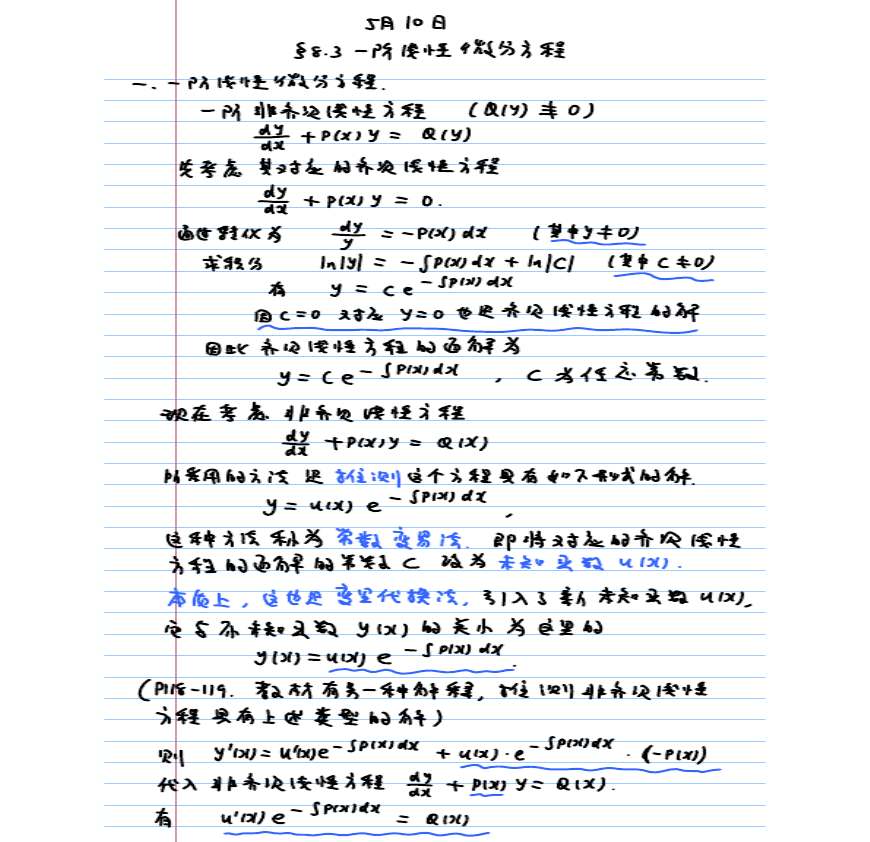 5月10日
§8.3 一阶线性微分方程
一. 一阶线性微分方程.
一阶非齐次线性方程 (Q(y) ≢ 0)
dy/dx + P(x) y = Q(y)
先考虑其对应的齐次线性方程
dy/dx + P(x) y = 0.
通过转化为 dy/y = -P(x) dx (其中 y ≠ 0)
求积分 ln|y| = -∫P(x) dx + ln|C| (其中 C ≠ 0)
有 y = C e^{-∫P(x) dx}
因 C = 0 对应 y = 0 也是齐次线性方程的解
因此齐次线性方程的通解为
y = C e^{-∫P(x) dx}, C 为任意常数.
现在考虑非齐次线性方程
dy/dx + P(x) y = Q(x)
所采用的方法是推测这个方程具有如下形式的解.
y = u(x) e^{-∫P(x) dx},
这种方法称为常数变易法. 即将对应的齐次线性
方程的通解的常数 C 改为未知函数 u(x).
本质上, 这也是变量代换法, 引入了新未知函数 u(x),
它与原未知函数 y(x) 的关系为这里的
y(x) = u(x) e^{-∫P(x) dx}.
(P118-119. 教材有另一种解释, 推测非齐次线性
方程具有上述类型的解)
则 y'(x) = u'(x) e^{-∫P(x) dx} + u(x)·e^{-∫P(x) dx}·(-P(x))
代入非齐次线性方程 dy/dx + P(x) y = Q(x).
有 u'(x) e^{-∫P(x) dx} = Q(x)